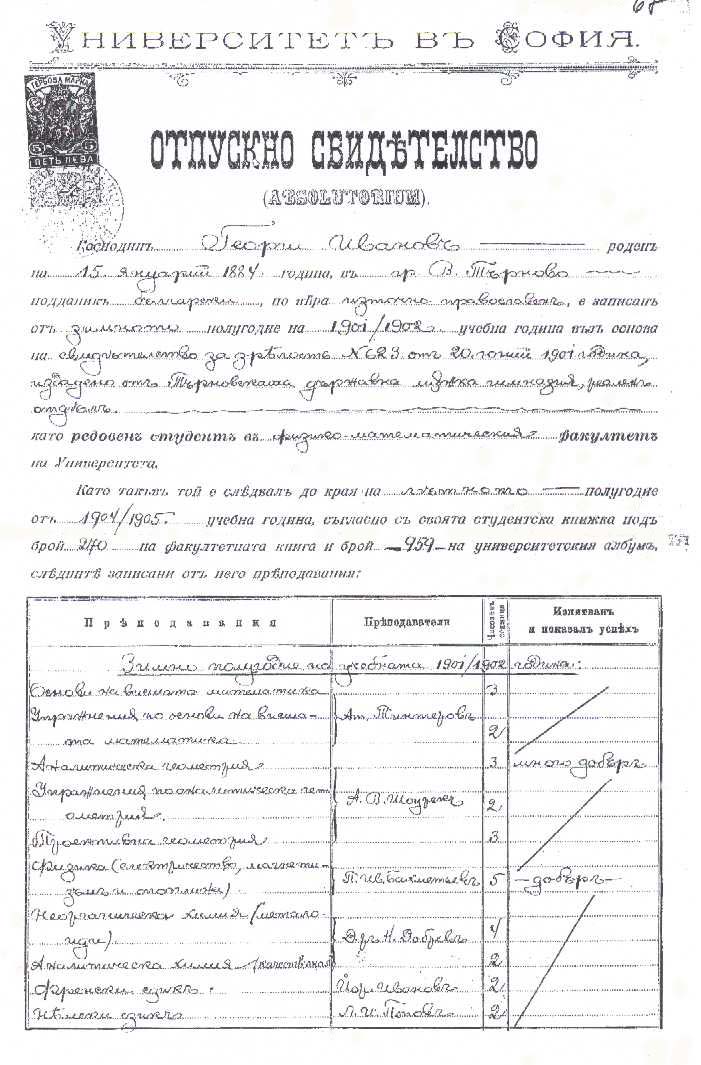 68
Университетъ въ София.
ГЕРБОВА МАРКА
5 5
ПЕТЬ ЛЕВА
ОТПУСКНО СВИДѢТЕЛСТВО
(ABSOLUTORIUM).
Господинъ Георги Ивановъ роденъ
на 15 януарий 1884 година, въ гр. В. Търново
подданикъ български, по вѣра източно православенъ, е записанъ
отъ зимното полугодие на 1901/1902 учебна година възъ основа
на свидѣтелство за зрѣлость № 623 отъ 20. юний 1901 година,
издадено отъ Търновската държавна мѫжка гимназия, реаленъ
отдѣлъ.
като редовенъ студентъ въ физико-математическия факултетъ
на Университета.
Като такъвъ той е слѣдвалъ до края на лѣтното полугодие
отъ 1904/1905. учебна година, съгласно съ своята студентска книжка подъ
брой 240 на факултетната книга и брой 959 на университетския албумъ,
слѣднитѣ записани отъ него прѣподавания:
Прѣподавания Прѣподаватели Часове въ седмица Изпитванъ и показалъ успѣхъ
Зимно полугодие на учебната 1901/1902 година:
Основи на висшата математика 3
Упражнения по основи на висша- Ат. Тинтеровъ
та математика 2
Аналитическа геометрия 3 много добъръ
Упражнения по аналитическа ге- А. В. Шоурекъ 2
ометрия.
Проективна геометрия 3
Физика (електричество, магнети- П. Ив. Бахметьевъ 5 -добъръ-
зъмъ и топлина)
Неорганическа химия (метало- 4
иди) Д-ръ Н. Добревъ
Аналитическа химия (качествена) 2
Френски езикъ. Йор. Ивановъ 2
Нѣмски езикъ Поповъ 2